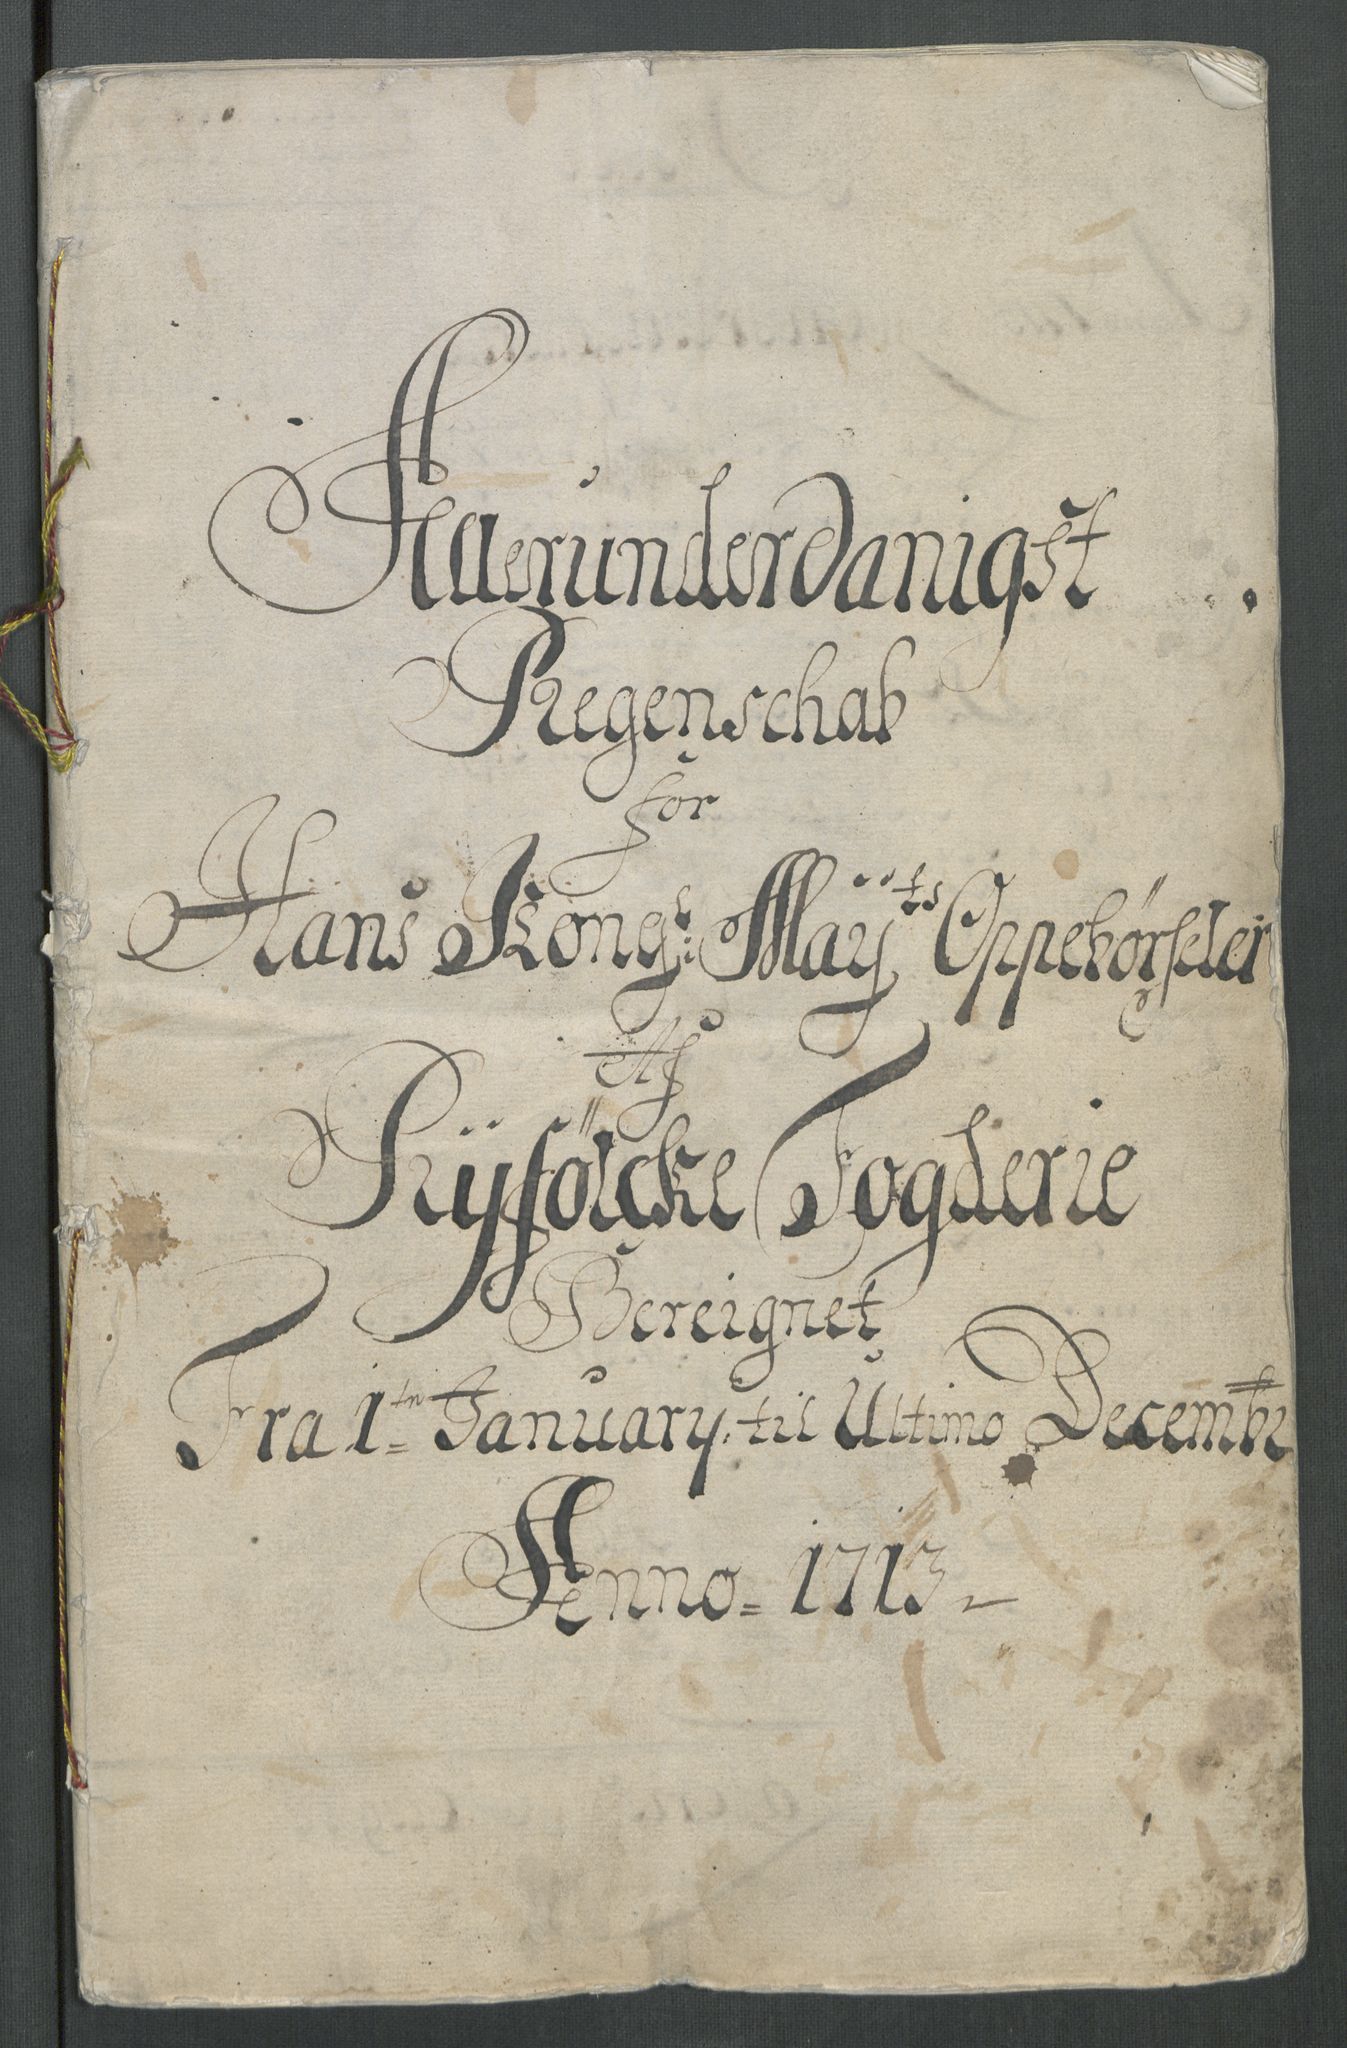 Allerunderdanigst
Regenschab
for
Hans Kong: Mayts Oppebørseler
Af
Ryfølcke Fogderie
Bereignet
Fra 1tn January: til Ultimo Decembr
Anno = 1713